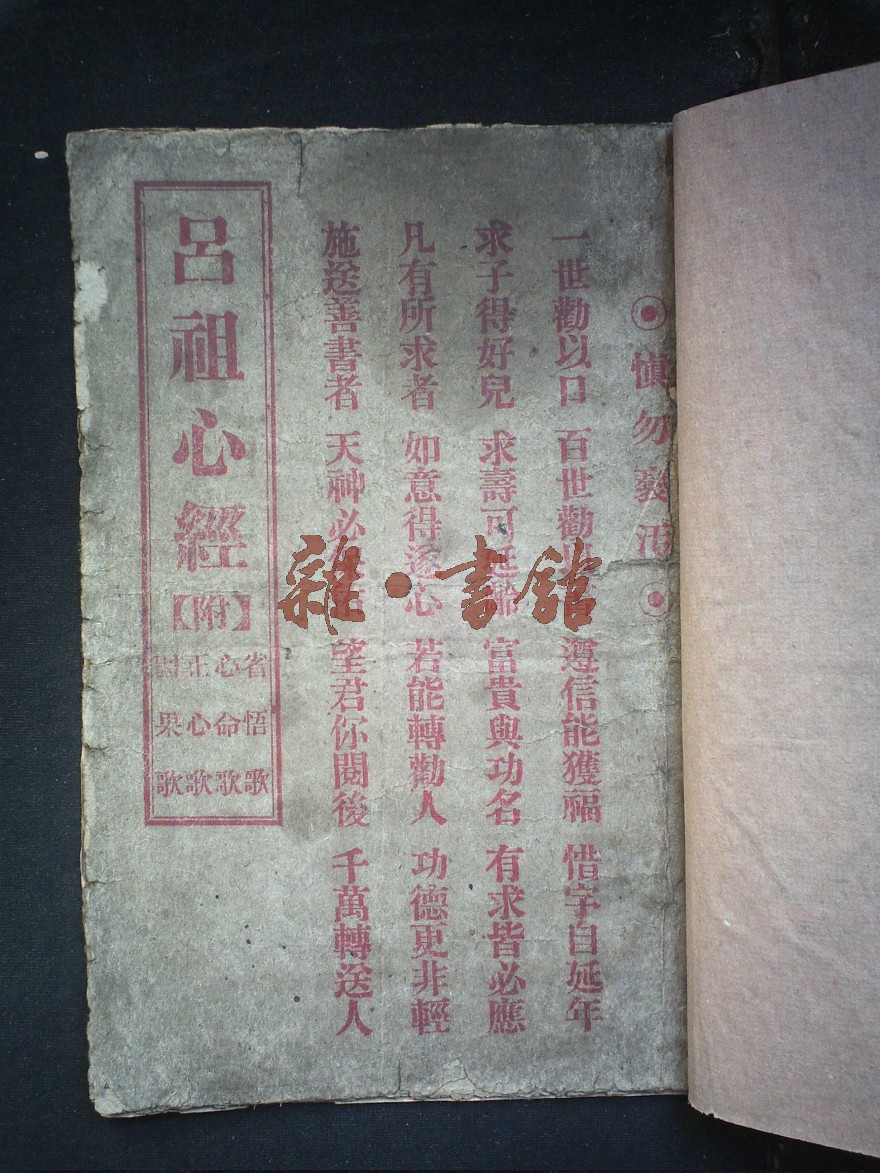 愼勿褻汚
一世勸以口 百世勸 遵信能獲福 惜字自延年
求子得好兒 求壽可延齡 富貴與功名 有求皆必應
凡有所求者 如意得遂心 若能轉勸人 功德更非輕
施送善書者 天神必 望君你閱後 千萬轉送人
呂祖心經【附】
省悟歌
心命歌
正心歌
因果歌
雜·書館